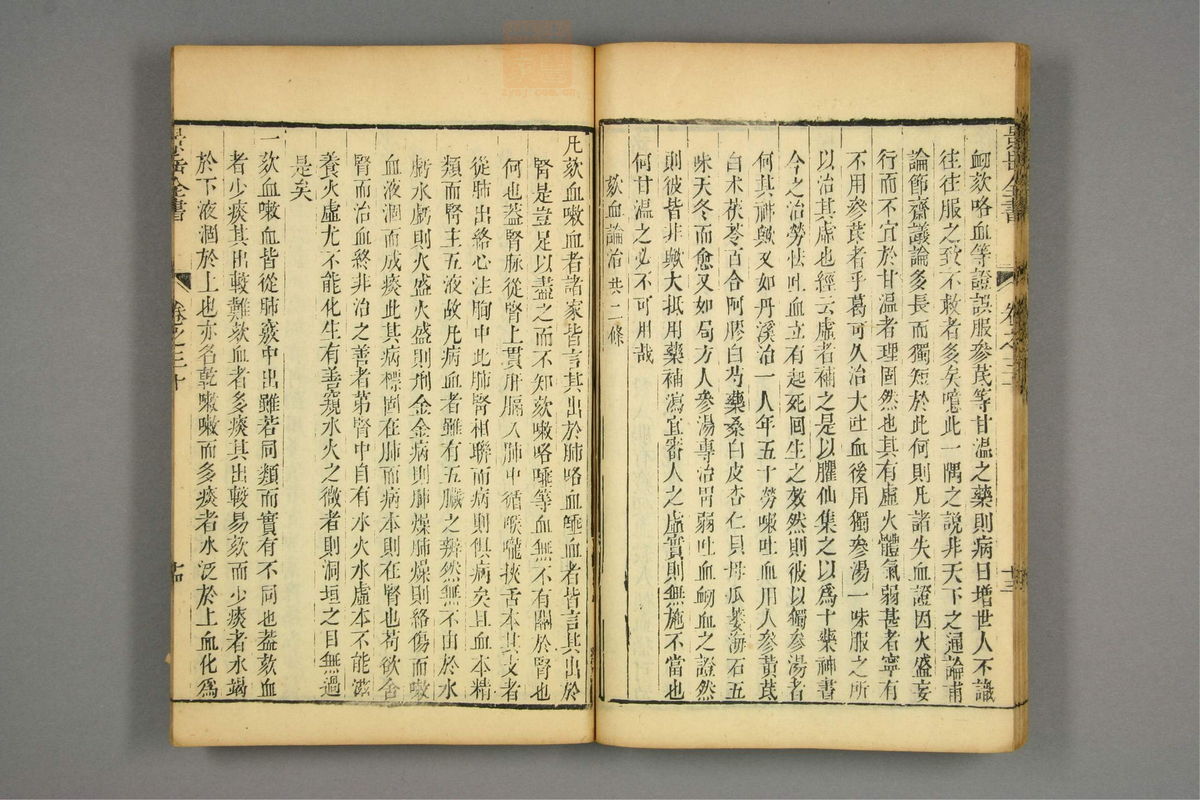 衂欬咯血等證誤服參芪等甘温之藥則病日增世人不識
往往服之致不救者多矣噫此一隅之説非天下之通論甫
論節齋議論多長而獨短於此何則凡諸失血證因火盛妄
行而不宜於甘温者理固然也其有虛火體氣弱甚者寧有
不用參芪者乎葛可久治大吐血後用獨參湯一味服之所
以治其虛也經云虛者補之是以臞仙集之以爲十藥神書
今之治勞怯吐血立有起死囘生之效然則彼以獨參湯者
何其謬歟又如丹溪治一人年五十勞嗽吐血用人參黄芪
白术茯苓百合阿膠白芍藥桑白皮杏仁貝母瓜蔞海石五
味天冬而愈又如局方人參湯專治胃弱吐血衂血之證然
則彼皆非歟大抵用藥補瀉宜審人之虛實則無施不當也
何甘温之必不可用哉
欬血論治 共二條
凡欬血嗽血者諸家皆言其出於肺咯血唾血者皆言其出於
腎是豈足以盡之而不知欬嗽咯唾等血無不有關於腎也
何也蓋腎脉從腎上貫肝膈入肺中循喉嚨挾舌本其支者
從肺出絡心注胸中此肺腎相聯而病則俱病矣且血本精
類而腎主五液故凡病血者雖有五臟之辨然無不由於水
虧水虧則火盛火盛則刑金金病則肺燥肺燥則絡傷而嗽
血液涸而成痰此其病標固在肺而病本則在腎也苟欲舍
腎而治血終非治之善者第腎中自有水火水虛本不能滋
養火虛尤不能化生有善窺水火之微者則洞垣之目無過
是矣
一欬血嗽血皆從肺竅中出雖若同類而實有不同也蓋欬血
者少痰其出較難欬血者多痰其出較易欬而少痰者水竭
於下液涸於上也亦名乾嗽嗽而多痰者水泛於上血化爲
景岳全書
卷之三十
十四
景岳全書
卷之三十